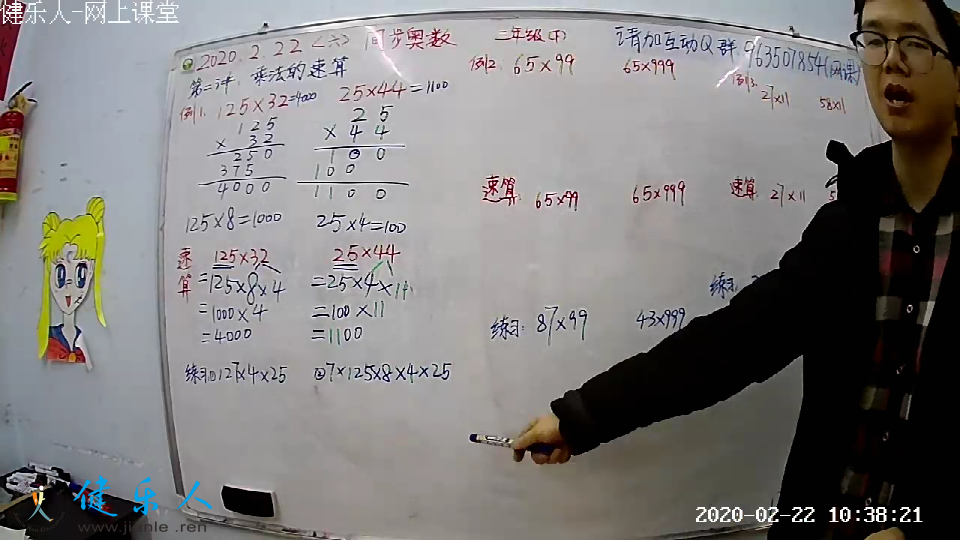 健乐人-网上课堂
2020.2.22<六> 同步奥数 三年级(下) 请加互动Q群 963501854(网课)
第二讲: 乘法的速算
例1. 125×32=4000 25×44=1100
125
× 32
250
375
4000
25
× 44
100
100
1100
125×8=1000 25×4=100
速算 125×32
=125×8×4
=1000×4
=4000
25×44
=25×4×11
=100×11
=1100
练习①127×4×25 ②7×125×8×4×25
例2. 65×99 65×999
速算: 65×99 65×999
练习: 87×99 43×999
例3. 27×11 58×11
速算 27×11
练习
健乐人
www.jianle.ren
2020-02-22 10:38:21